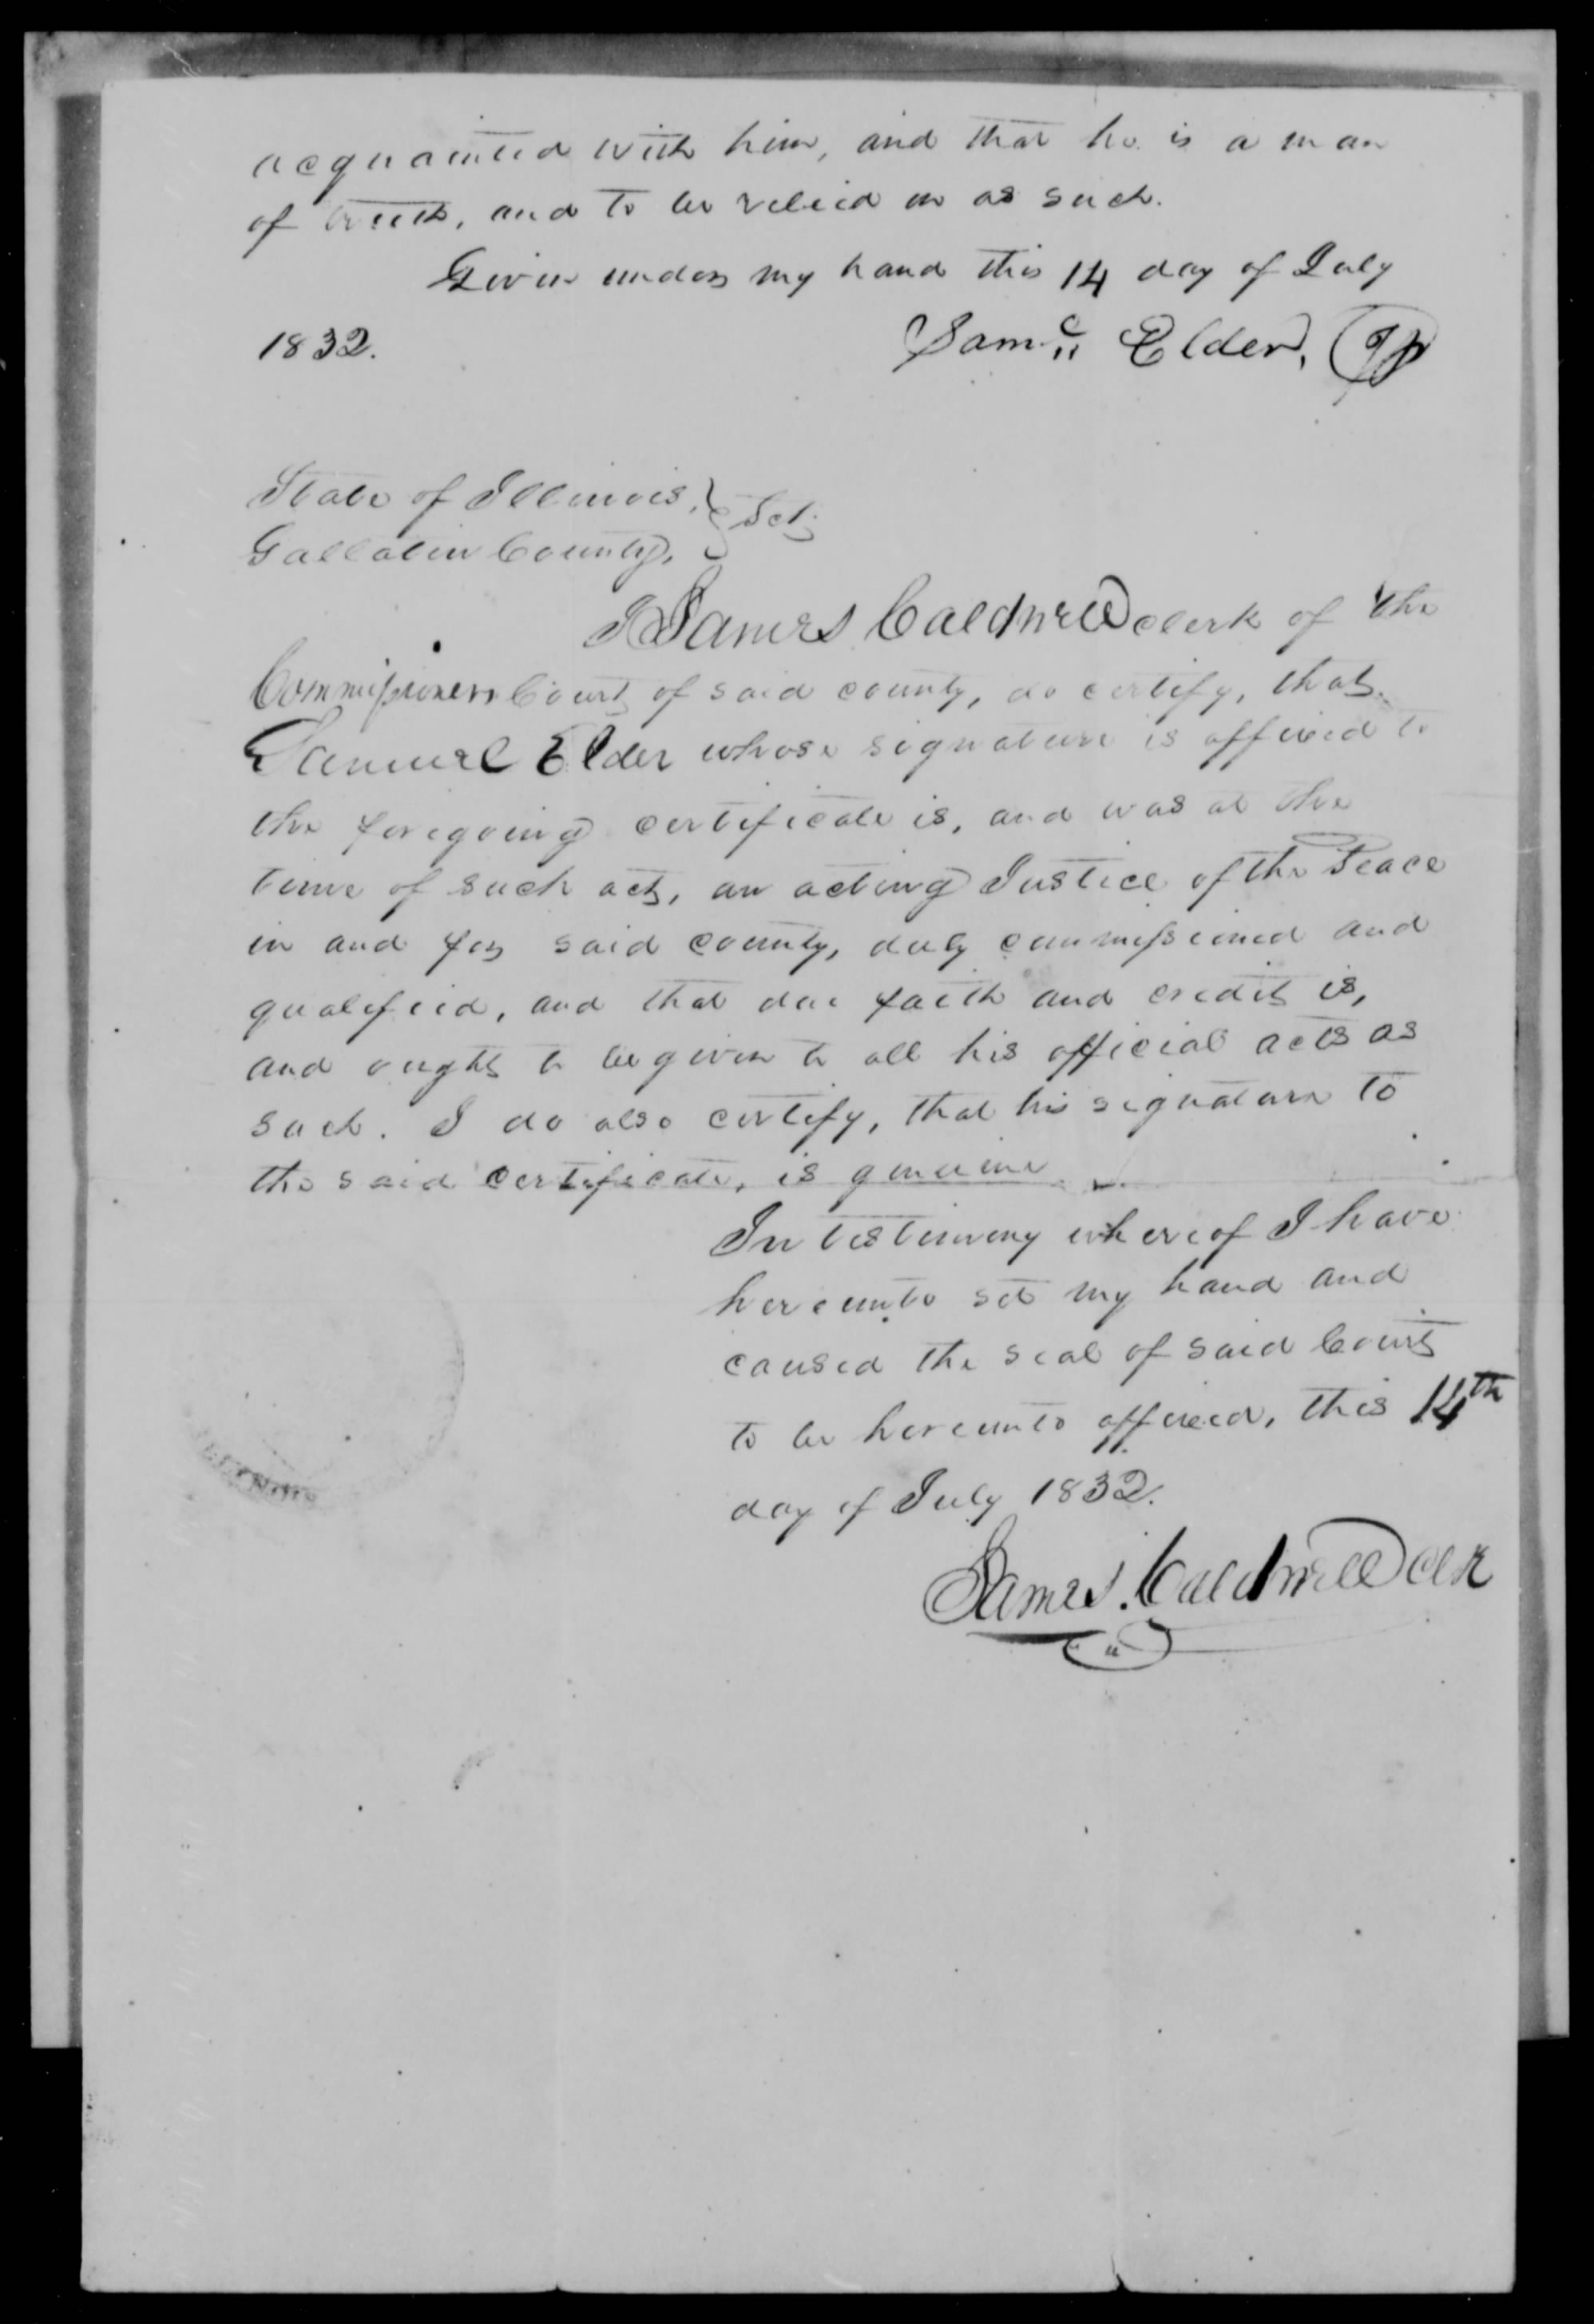 acquainted with him, and that he is a man
of truth, and to be relied on as such.
Given under my hand this 14 day of July
1832. Saml Elder, JP
State of Illinois, } Sct.
Gallatin County, }
I James Caldwell clerk of the
Commissioners Court of said county, do certify, that
Samuel Elder whose signature is affixed to
the foregoing certificate is, and was at the
time of such act, an acting Justice of the Peace
in and for said county, duly commissioned and
qualified, and that due faith and credit is,
and ought to be given to all his official acts as
such. I do also certify, that his signature to
the said certificate, is genuine.
In testimony whereof I have
hereunto set my hand and
caused the seal of said Court
to be hereunto affixed, this 14th
day of July 1832.
James Caldwell Clk